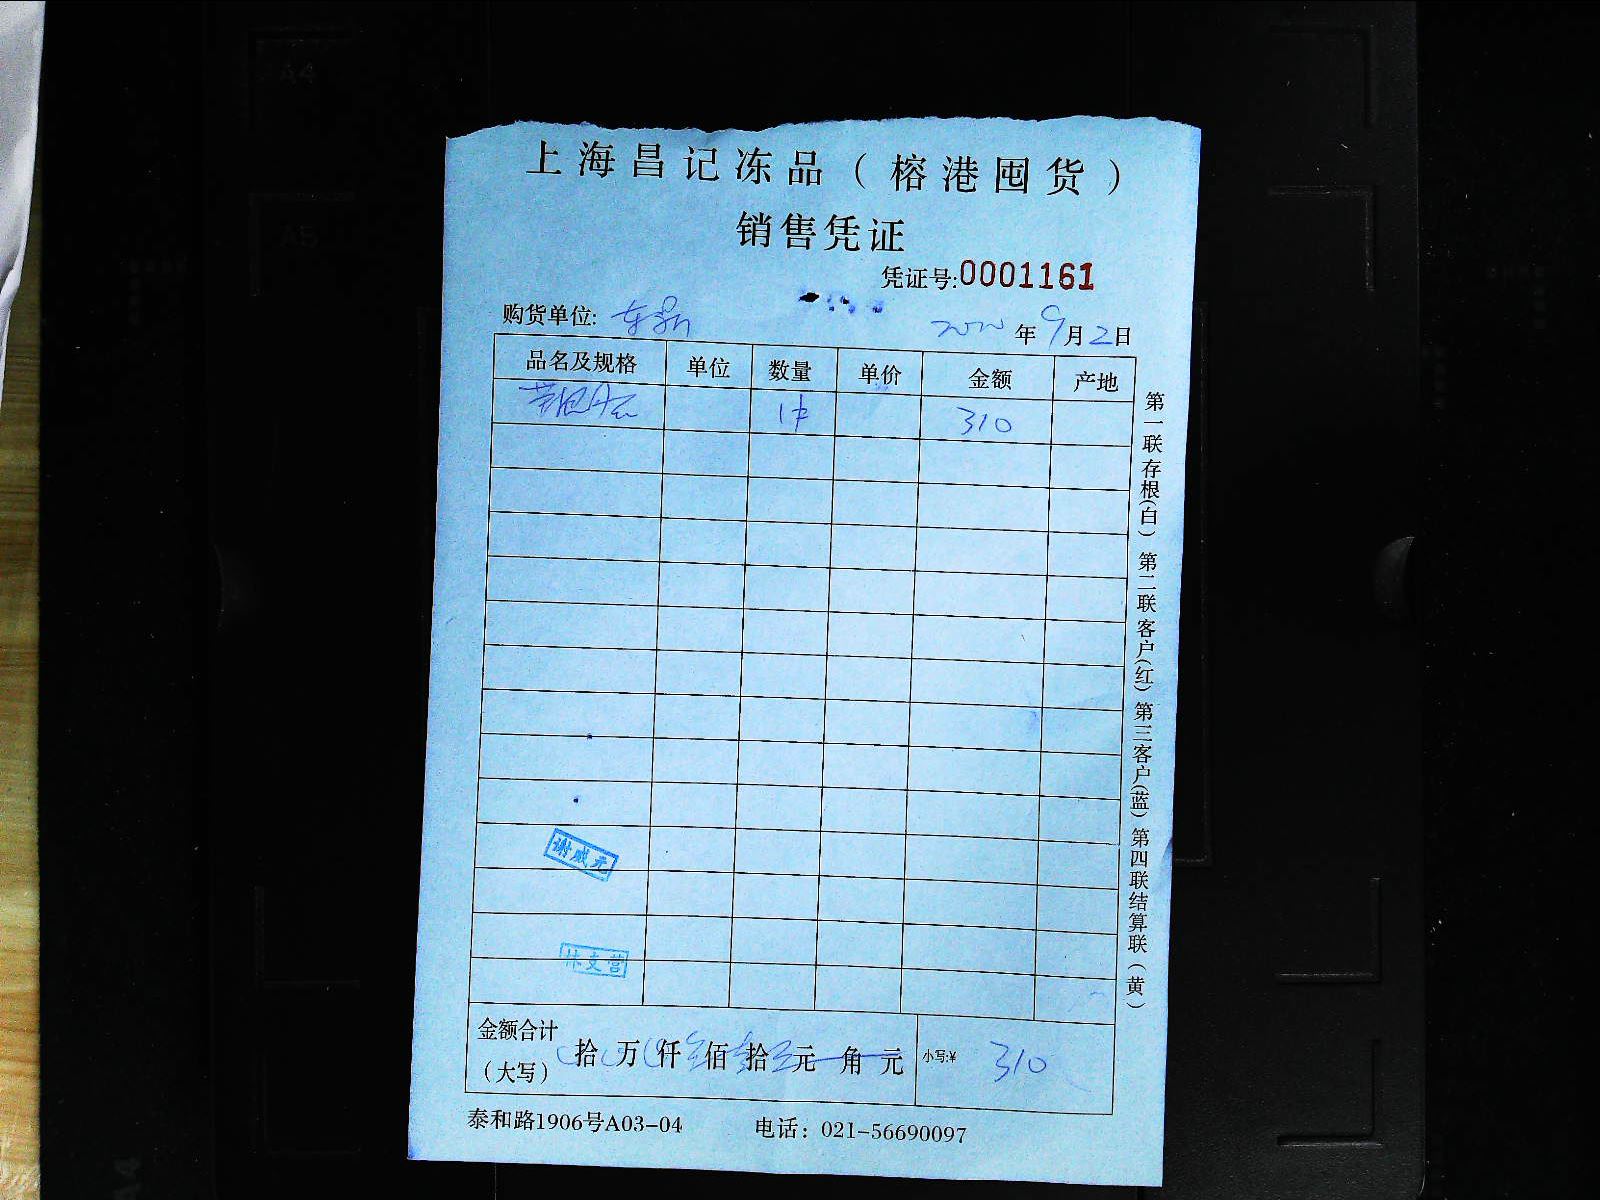 上海昌记冻品（榕港囤货）
销售凭证
凭证号:0001161
购货单位:
2020年9月2日
品名及规格 单位 数量 单价 金额 产地
1件 310
第一联存根(白) 第二联客户(红) 第三客户(蓝) 第四联结算联(黄)
谢成元
林文营
金额合计
（大写） 拾 万 仟 佰 拾 元 角 元 小写:¥ 310
泰和路1906号A03-04 电话：021-56690097
A4
A5